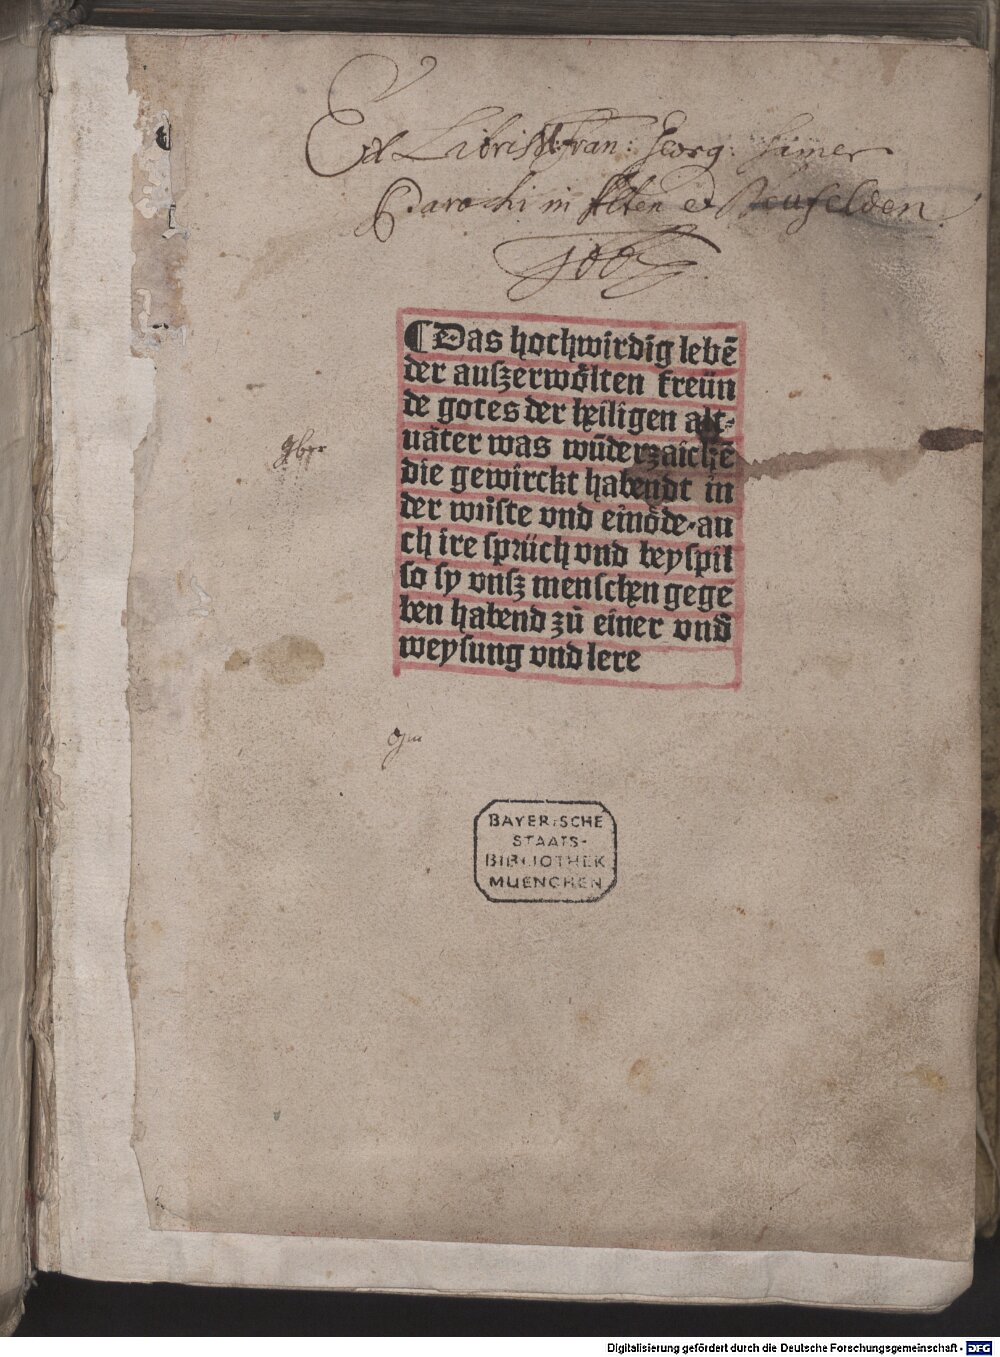 Ex Libris Fran: Georg: Hamer
Parochi in Alten et Neufelden
¶ Das hochwirdig lebē
der auſzerwoͤlten freün
de gotes der heiligen alt⸗
uäter was wūderzaichē
die gewirckt habendt in
der wuͤſte vnd einoͤde⸗au
ch ire ſprüch vnd beyſpil
ſo ſy vnſz menſchen gege
ben habend zuͦ einer vnd̄
weyſung vnd lere
BAYERISCHE
STAATS-
BIBLIOTHEK
MUENCHEN
Digitalisierung gefördert durch die Deutsche Forschungsgemeinschaft - DFG